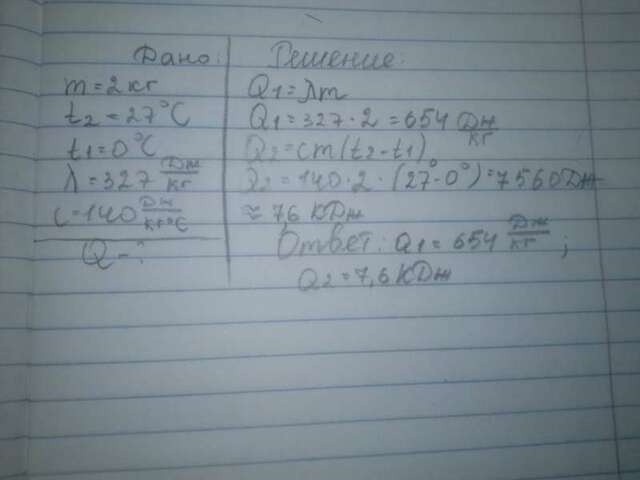 Дано:
m = 2 кг
t2 = 27°C
t1 = 0°C
λ = 327 Дж/кг
c = 140 Дж/кг°C
Q - ?
Решение:
Q1 = λm
Q1 = 327 · 2 = 654 Дж/кг
Q2 = cm(t2 - t1)
Q2 = 140 · 2 · (27° - 0°) = 7560 Дж
≈ 7,6 КДж
Ответ: Q1 = 654 Дж/кг ;
Q2 = 7,6 КДж